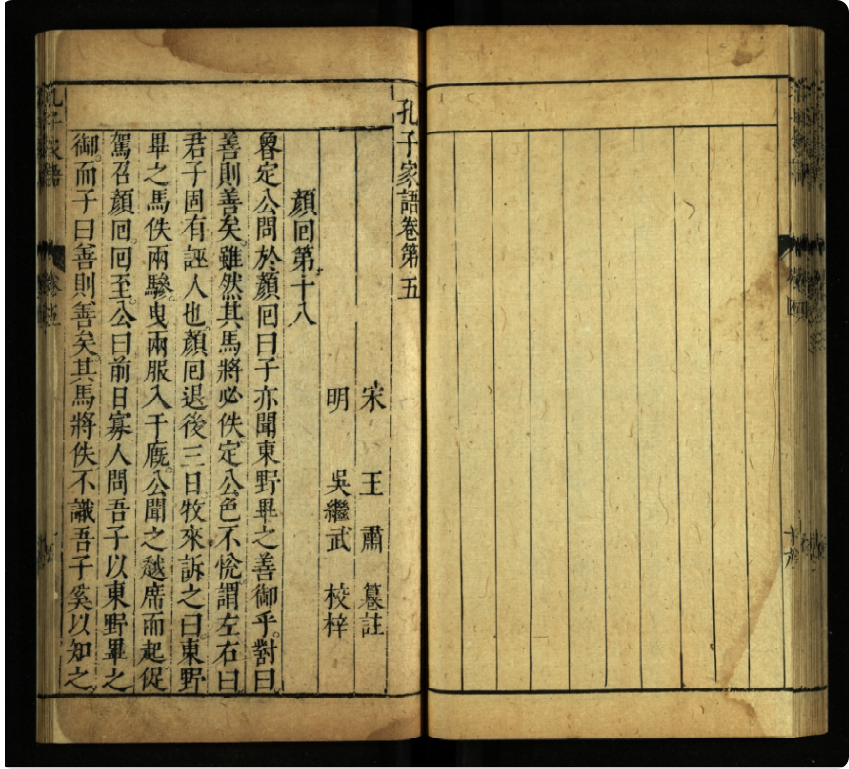 孔子家語卷第五
宋 王肅 纂註
明 吳繼武 校梓
顏回第十八
魯定公問於顏回曰子亦聞東野畢之善御乎對曰
善則善矣雖然其馬將必佚定公色不悅謂左右曰
君子固有誣人也顏回退後三日牧來訴之曰東野
畢之馬佚兩驂曳兩服入于廐公聞之越席而起促
駕召顏回回至公曰前日寡人問吾子以東野畢之
御而子曰善則善矣其馬將佚不識吾子奚以知之
孔子家語
卷五